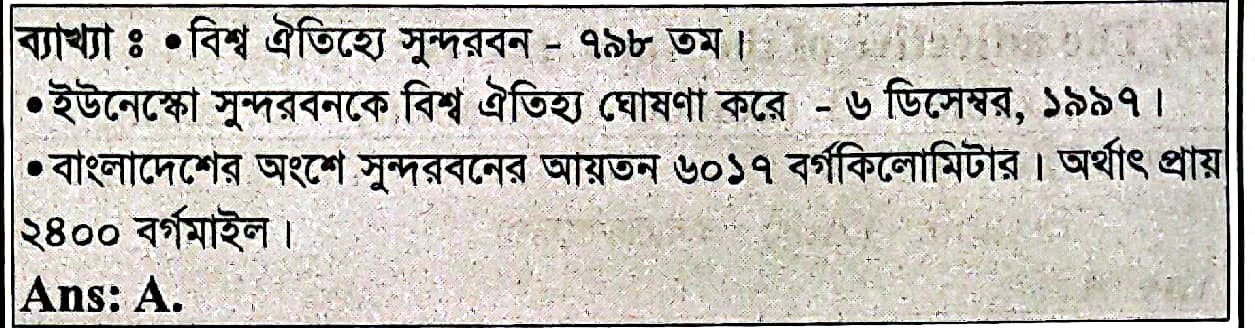 ব্যাখ্যা ঃ • বিশ্ব ঐতিহ্যে সুন্দরবন - ৭৯৮ তম।
• ইউনেস্কো সুন্দরবনকে বিশ্ব ঐতিহ্য ঘোষণা করে - ৬ ডিসেম্বর, ১৯৯৭।
• বাংলাদেশের অংশে সুন্দরবনের আয়তন ৬০১৭ বর্গকিলোমিটার। অর্থাৎ প্রায়
২৪০০ বর্গমাইল।
Ans: A.